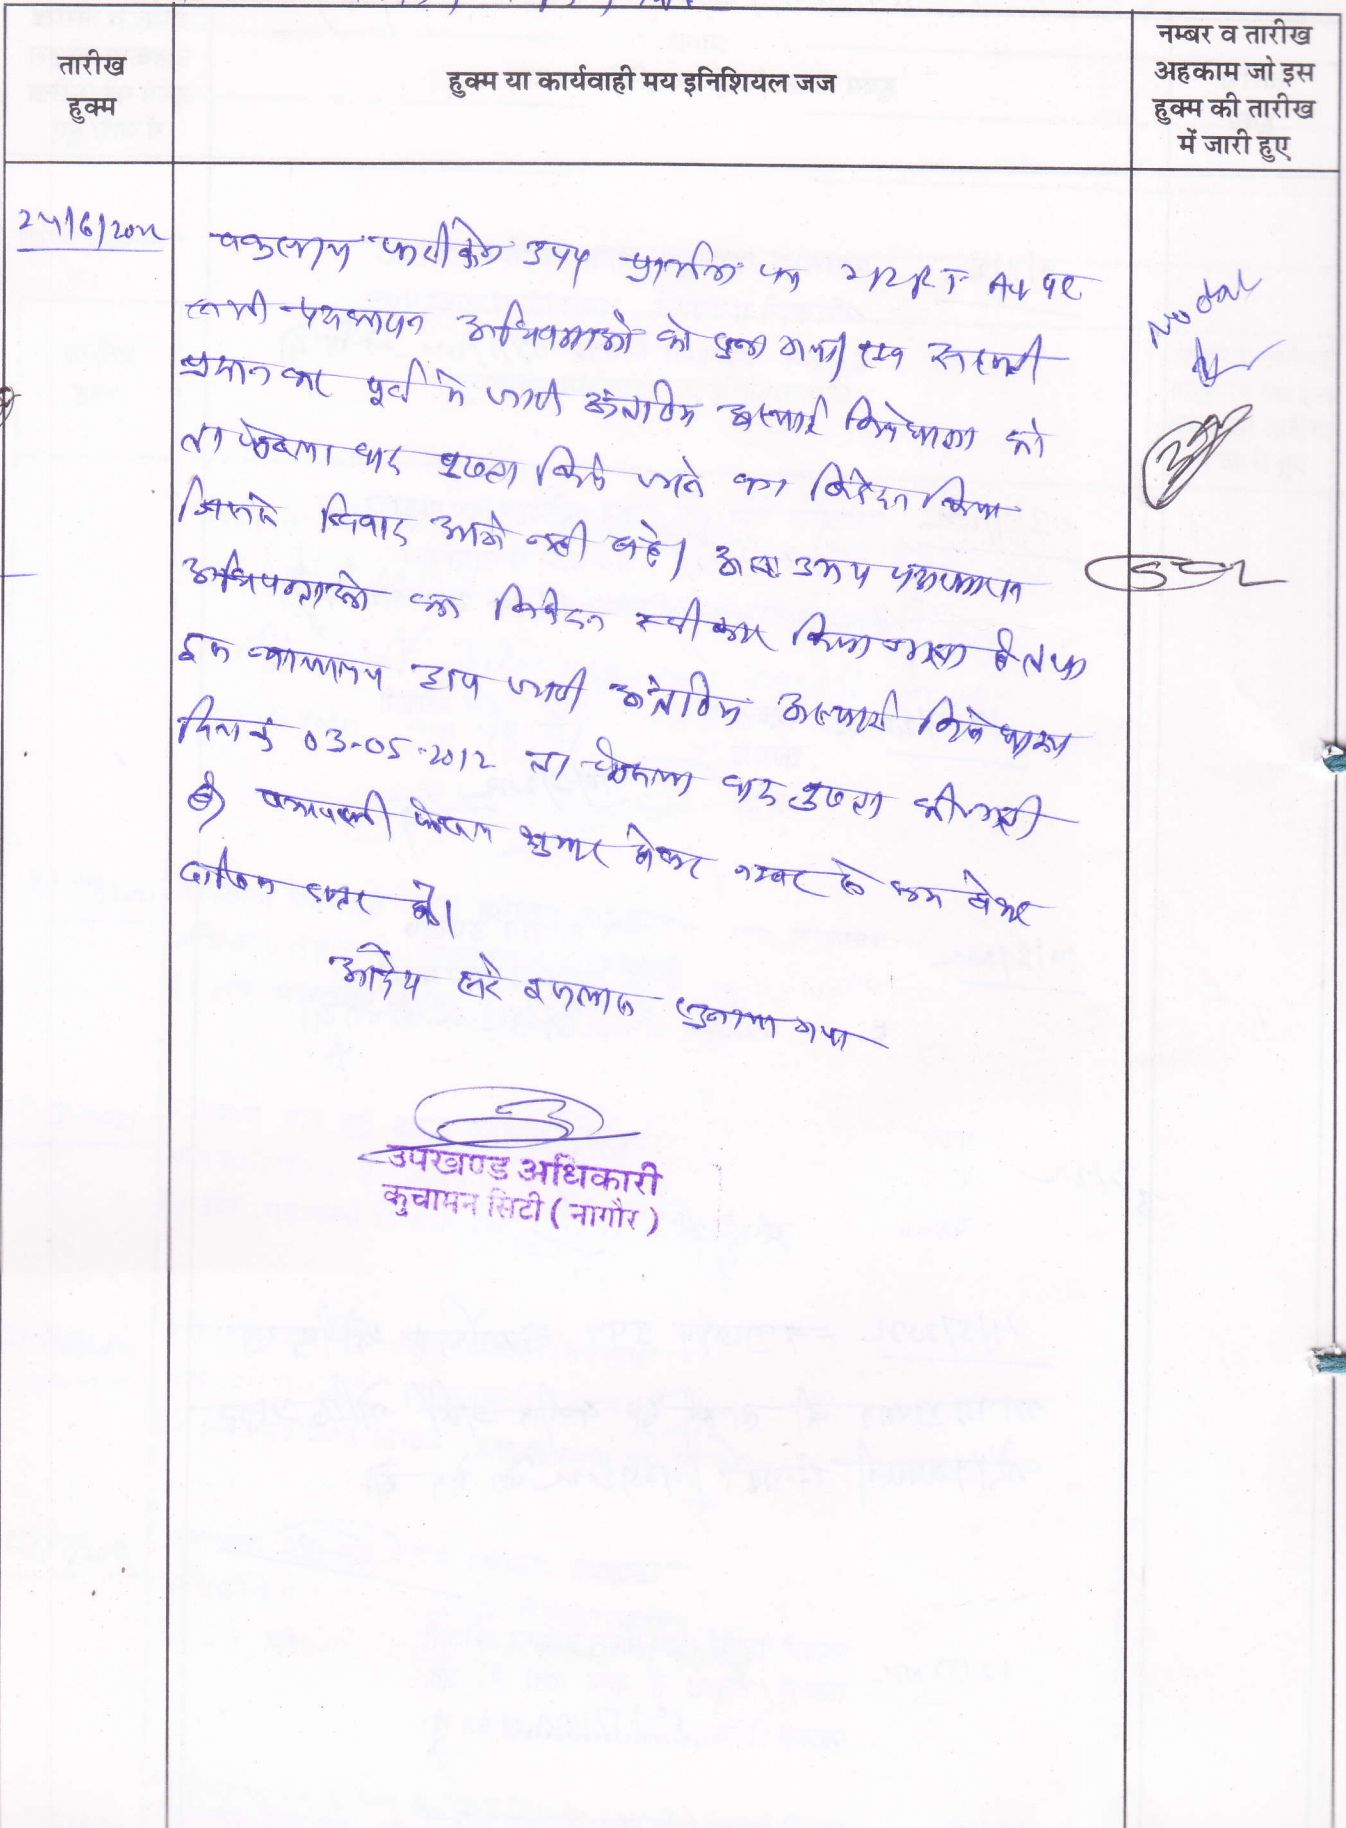 तारीख
हुक्म
हुक्म या कार्यवाही मय इनिशियल जज
नम्बर व तारीख
अहकाम जो इस
हुक्म की तारीख
में जारी हुए
वकुलाय फरीकेन उपप प्रार्थना पत्र
सभी पक्षकारान अधिवक्ताओं को सुना गया।
प्रदान कर पूर्व में जारी अंतरिम अस्थाई निषेधाज्ञा को
ता फैसला वाद पुख्ता किये जाने का निवेदन किया
जिससे विवाद आगे नहीं बढे। अतः उभय पक्षकारान
अधिवक्ताओं का निवेदन स्वीकार किया जाता है तथा
इस न्यायालय द्वारा जारी अंतरिम अस्थायी निषेधाज्ञा
दिनांक 03-05-2012 ता फैसला वाद पुख्ता की जाती
है। पत्रावली फैसल शुमार होकर नम्बर से कम होकर
दाखिल दफ्तर हो।
आदेश सरे इजलास सुनाया गया
उपखण्ड अधिकारी
कुचामन सिटी ( नागौर )